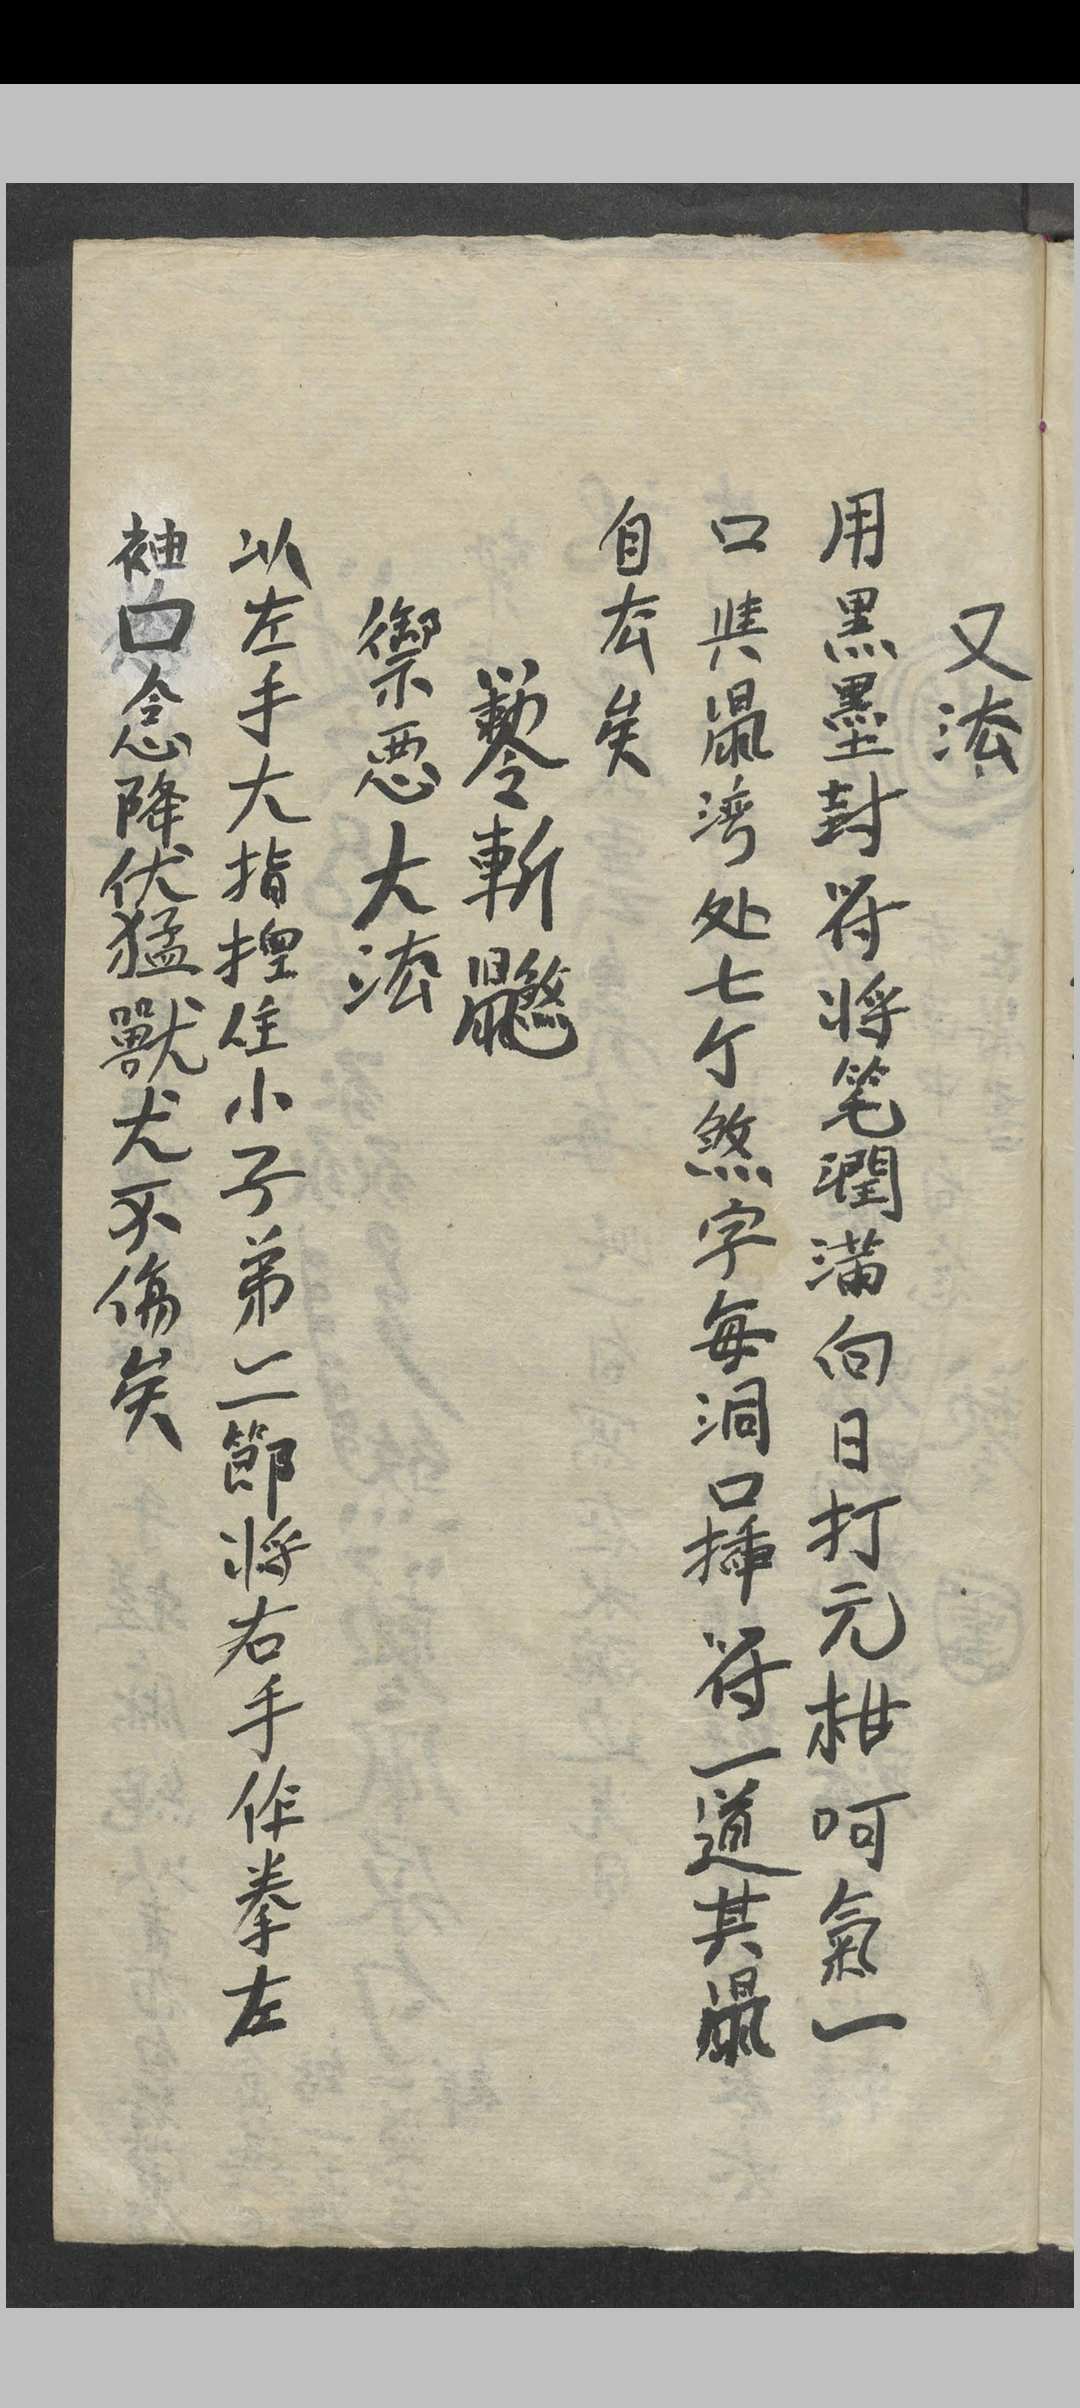 又法
用黑墨封符将笔潤满向日打元柑呵氣一
口與鼠湾处七个煞字每洞口揷符一道其鼠
自去矣
斬
禦悪大法
以左手大指揑住小子弟二節将右手作拳左
袖口念降伏猛獸犬不傷矣